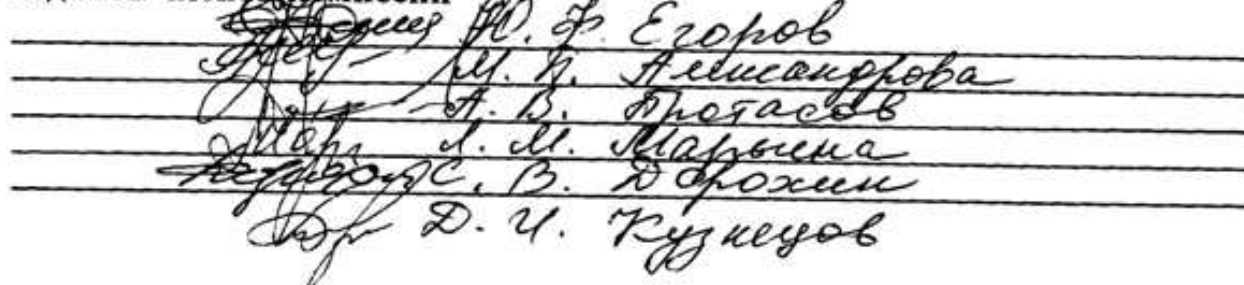 Ю. Ф. Егоров
М. П. Александрова
А. В. Протасов
Л. М. Марьина
С. В. Дорохин
Д. И. Кузнецов